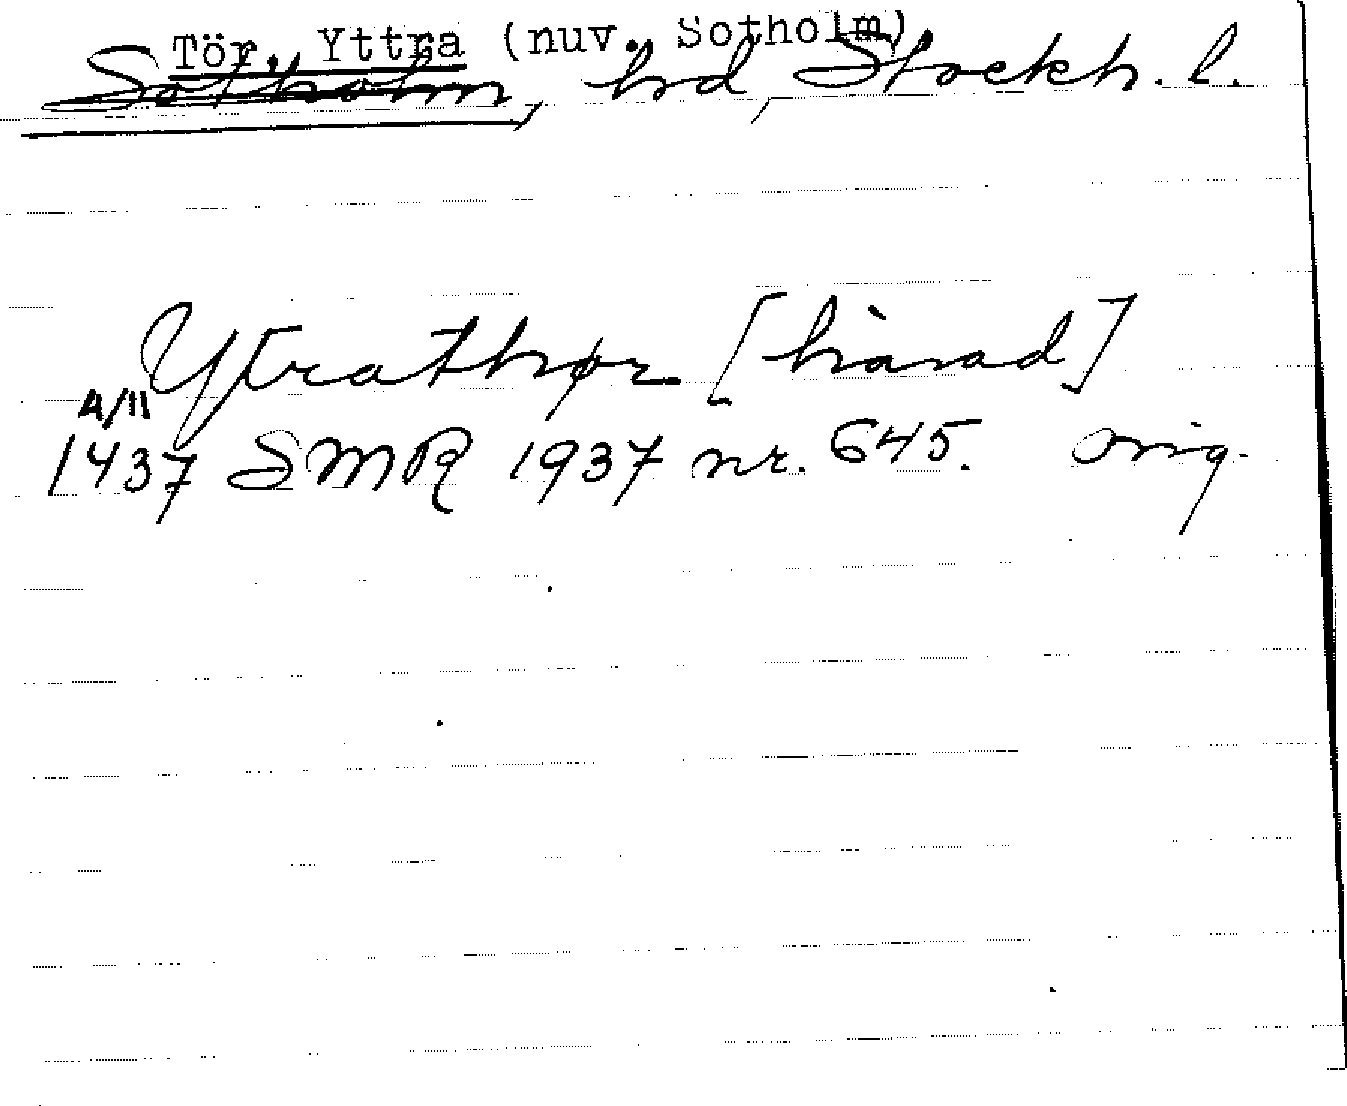 Tör, Yttra (nuv. Sotholm),
Sotholm, hd, Stockh. l.
Ytrathør [hàrad]
4/11
1437 SMR 1937 nr. 645. orig.